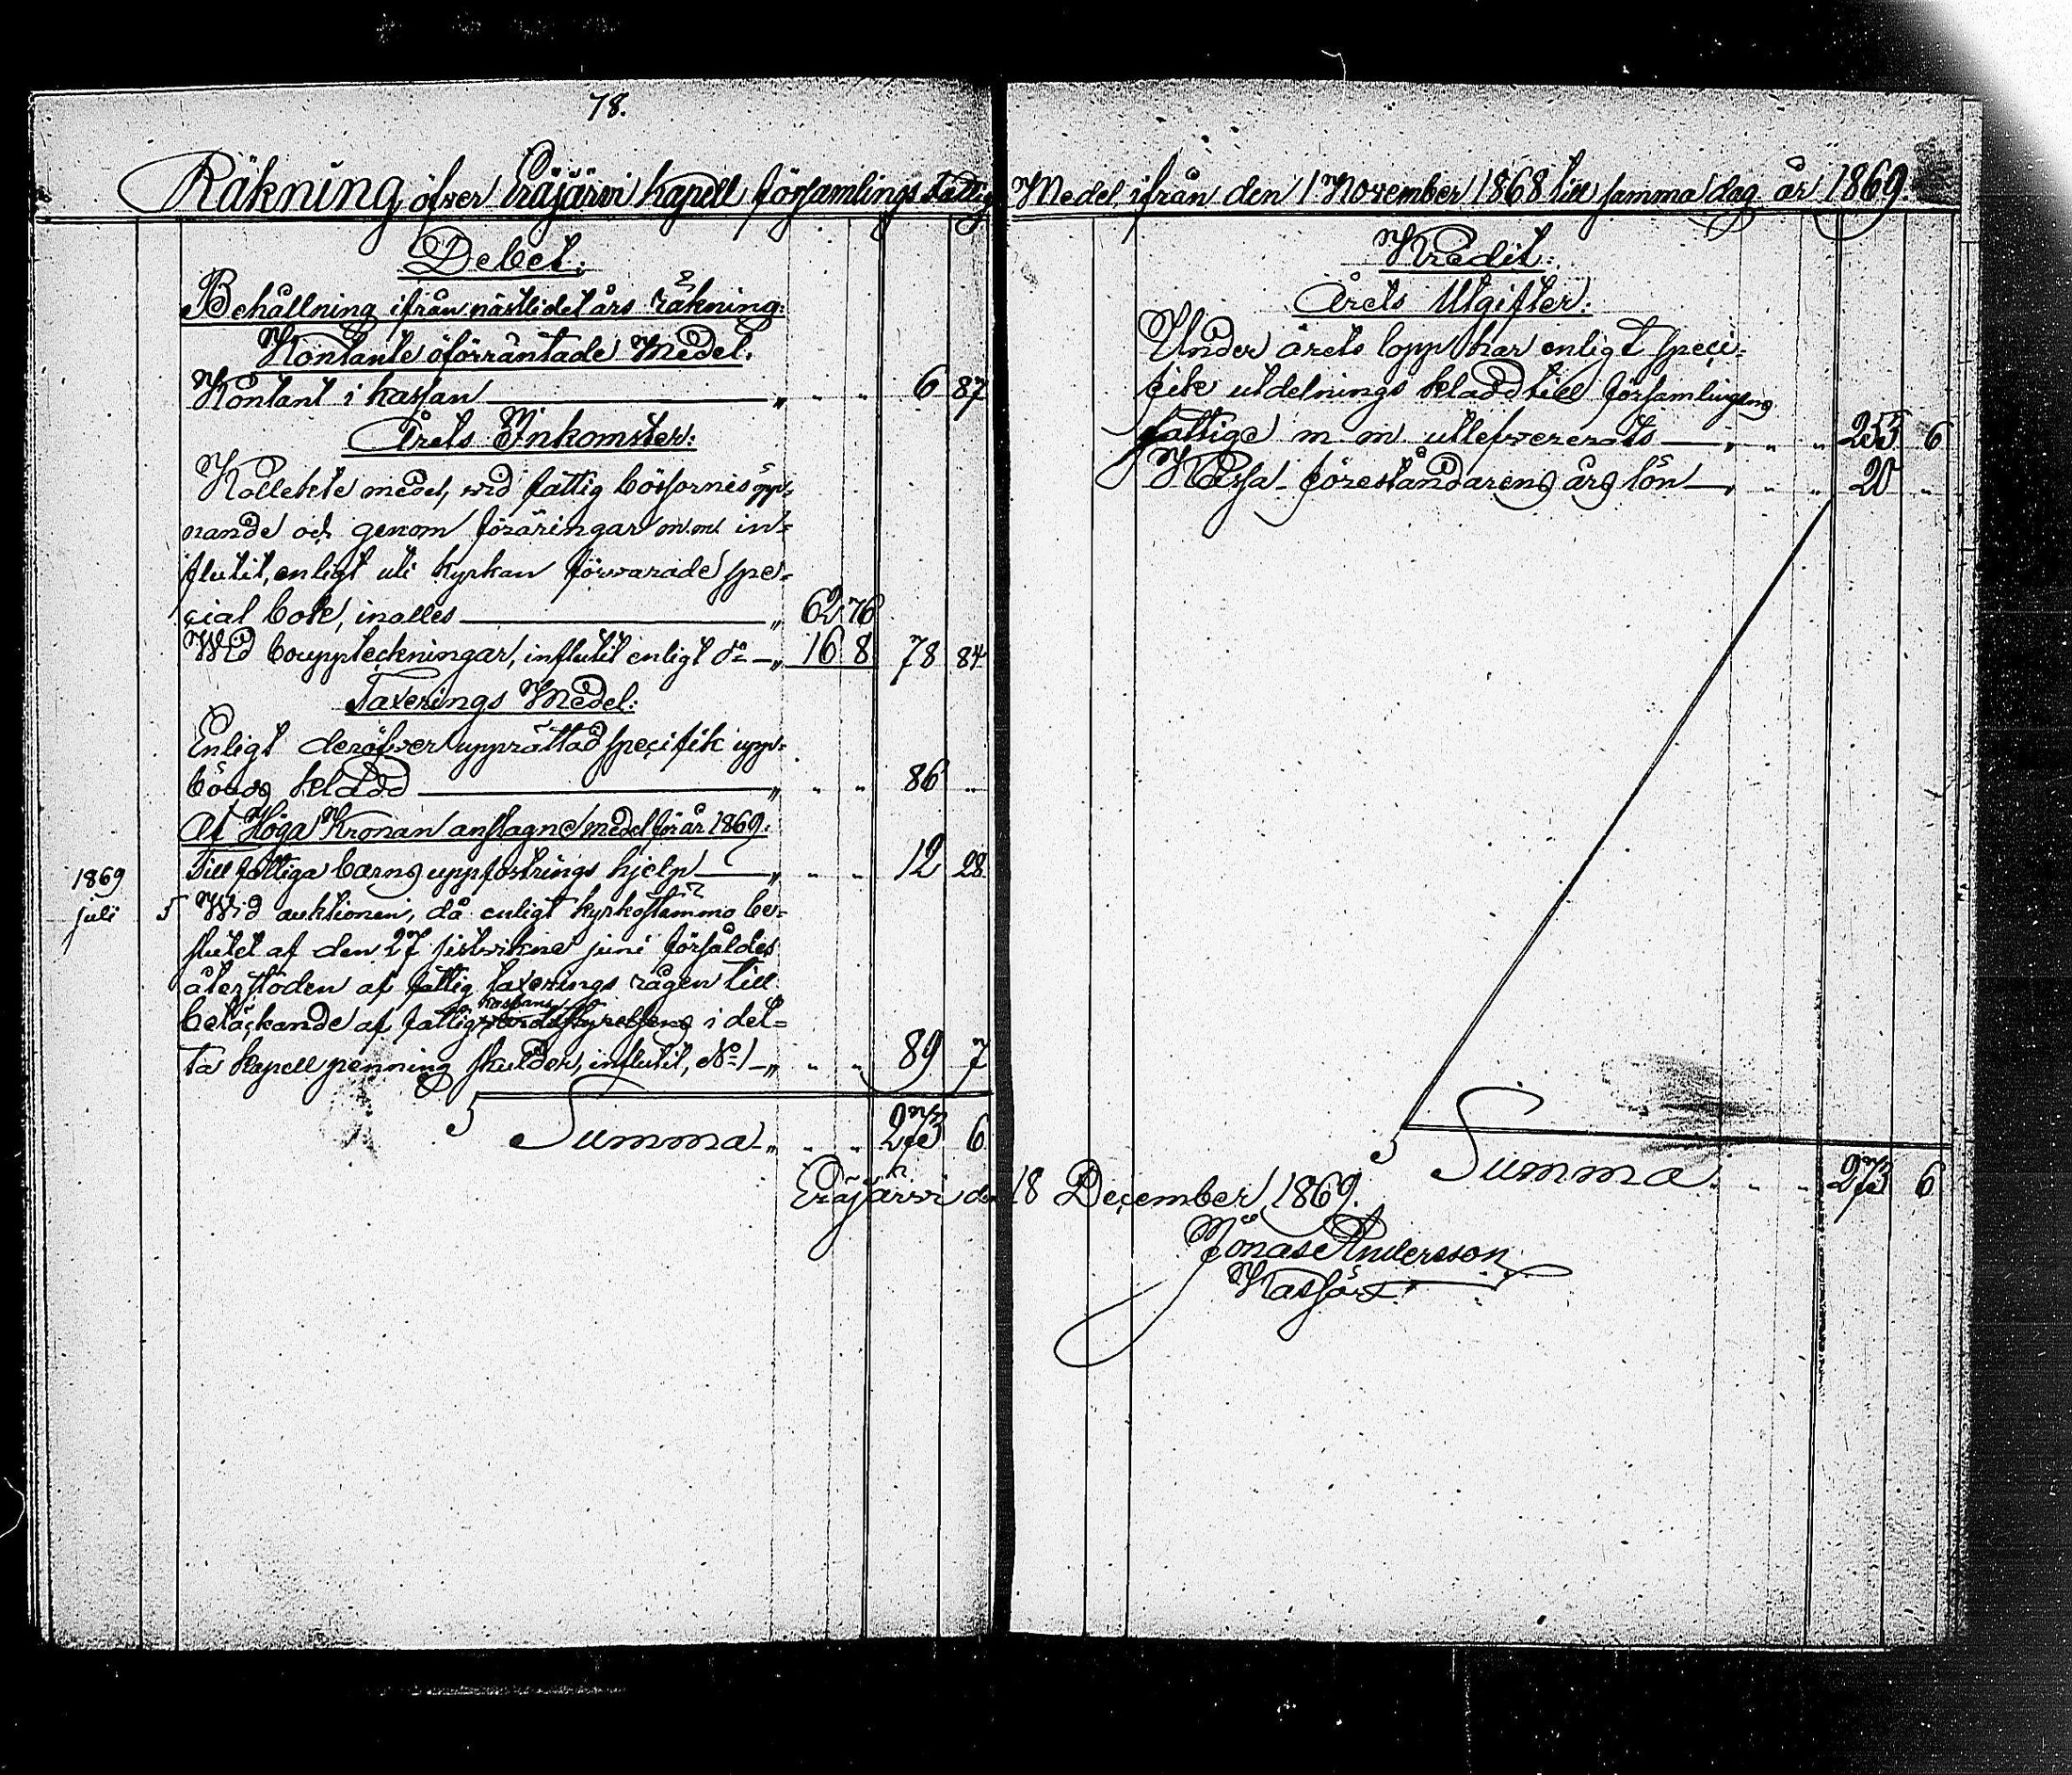 78.
Räkning öfver Eräjärvi kapell församlings Fattig Medel ifrån den 1 November 1868 till samma dag år 1869.
Debet:
Behållning ifrån nästlidet års räkning:
Kontante oförräntade Medel.
Kontant i kassan — „ „ „ 6 87
Årets Inkomster:
Kollekte medel, wid fattig bössornes öpp-
nande och genom föräringar m.m. in-
flutit, enligt uti Kyrkan förvarade spe-
cial bok, inalles — „ 62 76
Wid bouppteckningar, influtit enligt do — „ 16 8 78 84
Taxerings Medel:
Enligt deröfver upprättad specifik upp-
börds kladd — „ „ „ 86 „
Af Höga Kronan anslagne medel för år 1869:
Till fattiga barns uppfostrings hjelp — „ „ „ 12 28
1869
juli 5 Wid auktionen, då enligt kyrkostämmo be-
slutet af den 27 sistvikne juni försåldes
återstoden af fattig taxerings rågen till
kassans
betäckande af fattigvårdsstyrelsens i det-
ta kapell penning skulder, influtit, No 1 — „ „ „ 89 7
Summa — „ „ „ 273 6
Kredit:
Årets Utgifter:
Under årets lopp har enligt speci-
fik utdelnings kladd till församlingens
fattige m m utlefvererats — „ „ „ 253 6
Kassa-föreståndarens års lön — „ „ „ 20 „
Summa „ „ „ 273 6
Eräjärvi den 18 December 1869.
Jonas Andersson
Kassör